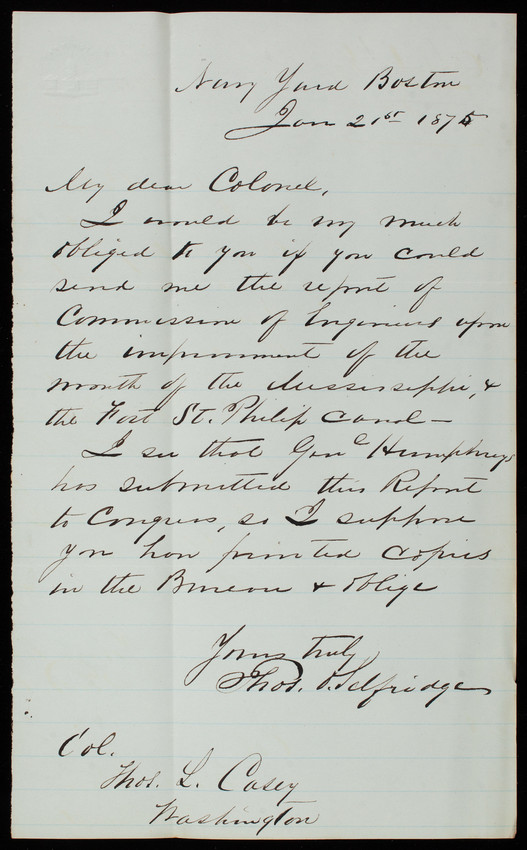 Navy Yard Boston
Jan 21st 1875
My dear Colonel,
I would be very much
obliged to you if you could
send me the report of
Commission of Engineers upon
the improvement of the
mouth of the Mississippi, &
the Fort St. Philip canal –
I see that Genl Humphreys
has submitted this Report
to Congress, so I suppose
you have printed copies
in the Bureau & oblige
Yours truly
Thos. O. Selfridge
Col.
Thos. L. Casey
Washington